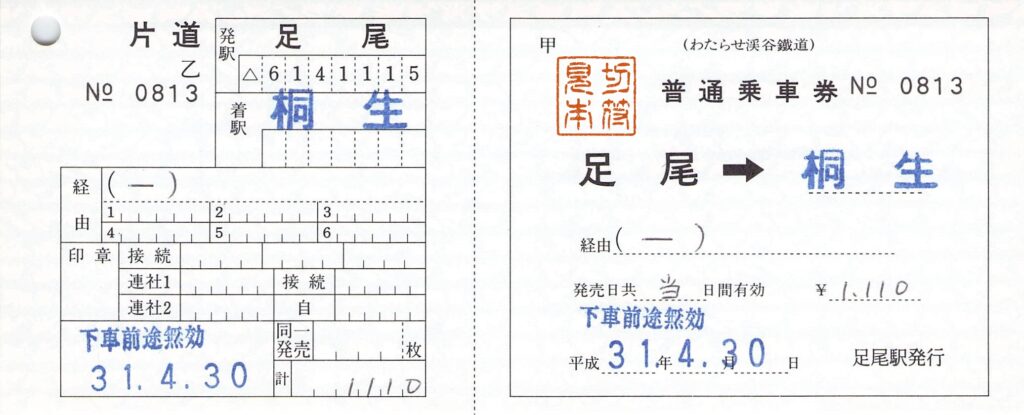 片道
乙
№ 0813
発駅 足尾
△6141115
着駅 桐生
経由 (一)
1 2 3
4 5 6
印章 接続
連社1 接続
連社2 自
同一発売 枚
計 1,110
下車前途無効
31.4.30
甲 (わたらせ渓谷鐵道)
普通乗車券 № 0813
足尾➡桐生
経由(一)
発売日共 当 日間有効 ¥1,110
下車前途無効
平成 31.年 4.月 30 日 足尾駅発行